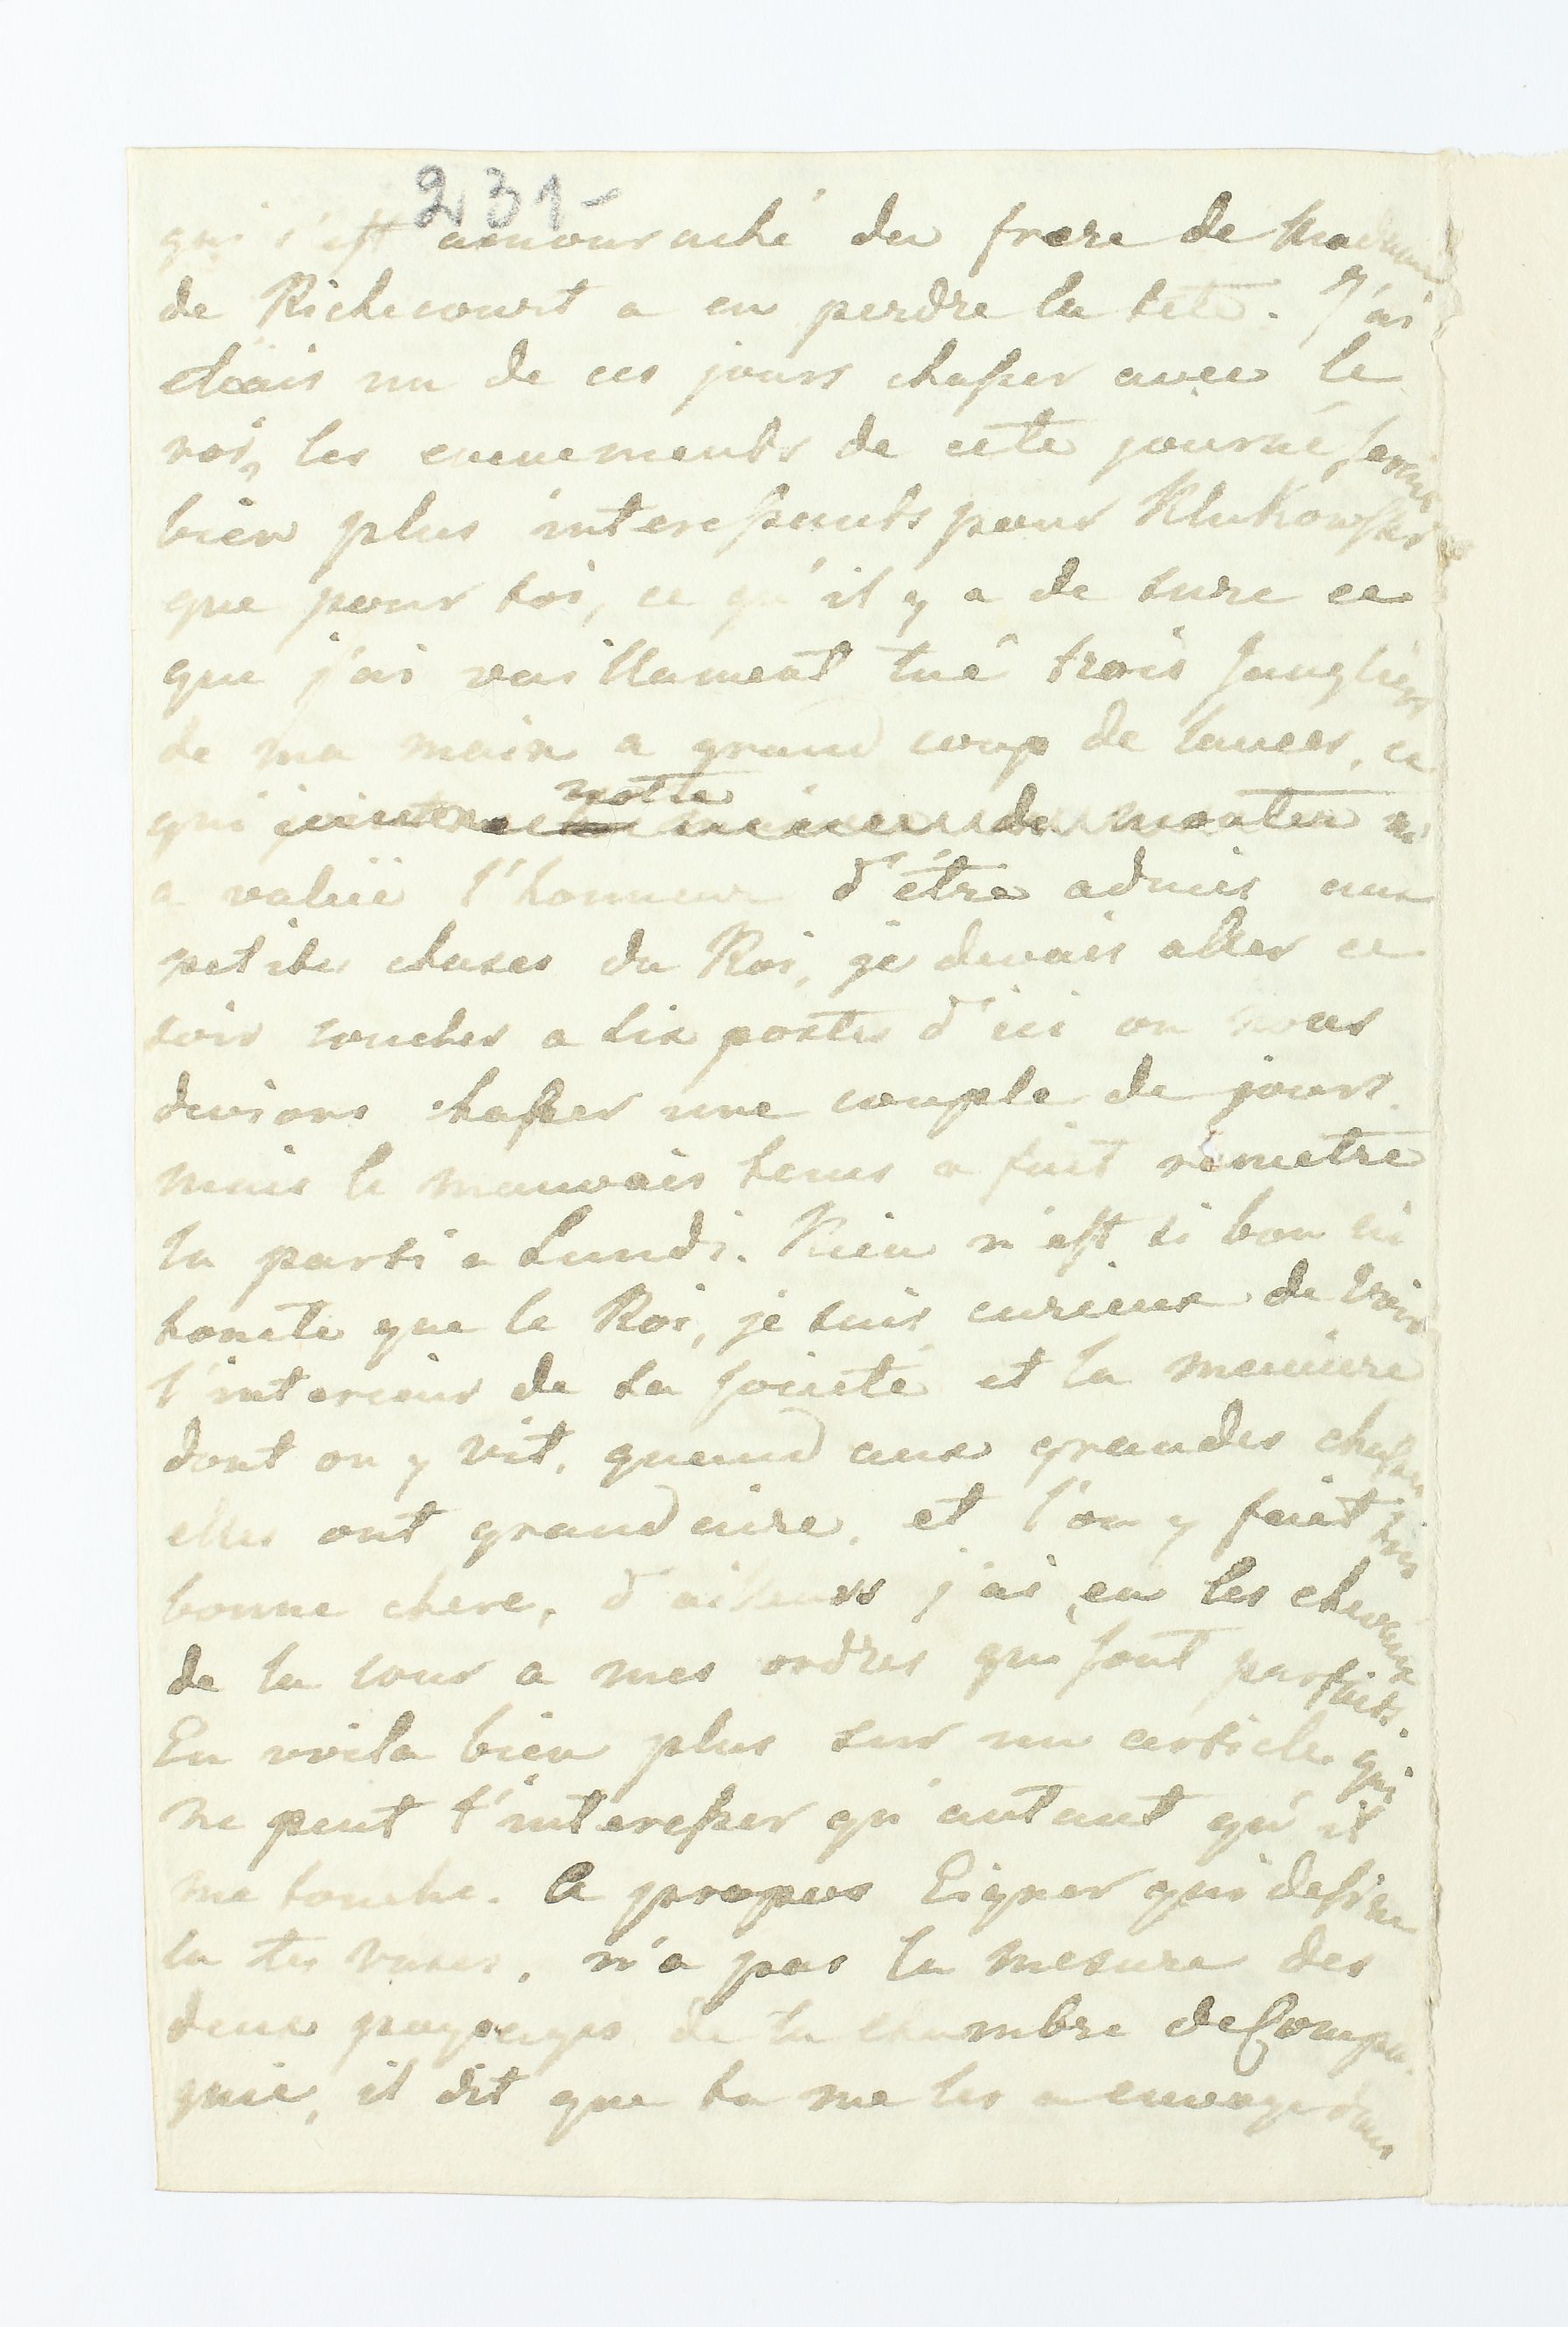 231-
qui s'est amouraché du frere de Madame
de Richecourt a en perdre la tete. J'ai
etois un de ces jours chasser avec le
roi, les evenements de cete journé seroient
bien plus interessants pour Klukowski
que pour toi, ce qu'il y a de sure ce
que j'ai vaillament tué trois sangliers
de ma main a grand coup de lances, ce
qui notre de monter m'
a valüe l'honneur d'être admis aux
petites chases du Roi, je devais aller ce
soir coucher a six postes d'ici ou nous
devions chasser une couple de jours.
mais le mauvais tems a fait remetre
la parti a Lundi. Rien n'est si bon ni
honete que le Roi, je suis curieux de voir
l'interieur de sa societé et la maniere
dont on y vit, quand aux grandes chasses
elles ont grand aire, et l'on y fait très
bonne chere, d'ailleurs j'ai eu les chevaux
de la cour a mes ordres qui sont parfaits.
En voila bien plus sur un article qui
ne peut t'interesser qu'autant qu'il
me touche. A propos Eigner qui dessine
la tes vases, n'a pas la mesure des
deux paysages de la chambre de Compa-
gnie, il dit que tu me les a envoyé dans